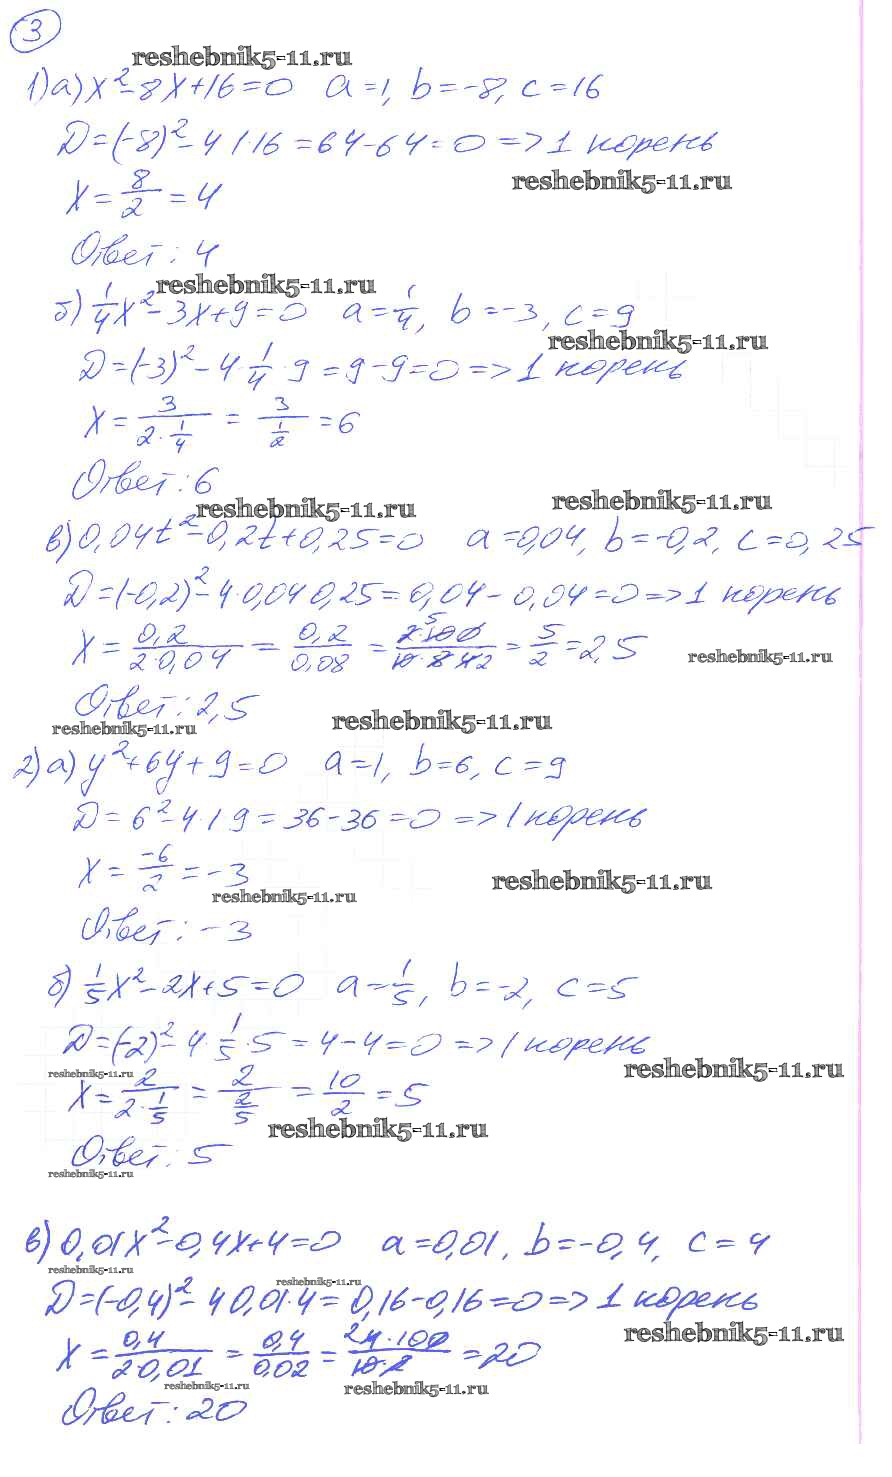 3
reshebnik5-11.ru
1) а) x² - 8x + 16 = 0 a = 1, b = -8, c = 16
D = (-8)² - 4·1·16 = 64 - 64 = 0 => 1 корень
reshebnik5-11.ru
x = 8/2 = 4
Ответ: 4
reshebnik5-11.ru
б) 1/4x² - 3x + 9 = 0 a = 1/4, b = -3, c = 9
reshebnik5-11.ru
D = (-3)² - 4·1/4·9 = 9 - 9 = 0 => 1 корень
x = 3/(2·1/4) = 3/(1/2) = 6
Ответ: 6
reshebnik5-11.ru reshebnik5-11.ru
в) 0,04t² - 0,2t + 0,25 = 0 a = 0,04, b = -0,2, c = 0,25
D = (-0,2)² - 4·0,04 0,25 = 0,04 - 0,04 = 0 => 1 корень
x = 0,2/(2·0,04) = 0,2/0,08 = = 5/2 = 2,5
reshebnik5-11.ru
Ответ: 2,5
reshebnik5-11.ru reshebnik5-11.ru
2) а) y² + 6y + 9 = 0 a = 1, b = 6, c = 9
D = 6² - 4·1 9 = 36 - 36 = 0 => 1 корень
x = -6/2 = -3
reshebnik5-11.ru reshebnik5-11.ru
Ответ: -3
б) 1/5x² - 2x + 5 = 0 a = 1/5, b = -2, c = 5
D = (-2)² - 4·1/5·5 = 4 - 4 = 0 => 1 корень
reshebnik5-11.ru reshebnik5-11.ru
x = 2/(2·1/5) = 2/(2/5) = 10/2 = 5
reshebnik5-11.ru
Ответ: 5
reshebnik5-11.ru
в) 0,01x² - 0,4x + 4 = 0 a = 0,01, b = -0,4, c = 4
reshebnik5-11.ru
reshebnik5-11.ru
D = (-0,4)² - 4 0,01·4 = 0,16 - 0,16 = 0 => 1 корень
reshebnik5-11.ru
x = 0,4/(2 0,01) = 0,4/0,02 = = 20
reshebnik5-11.ru reshebnik5-11.ru
Ответ: 20